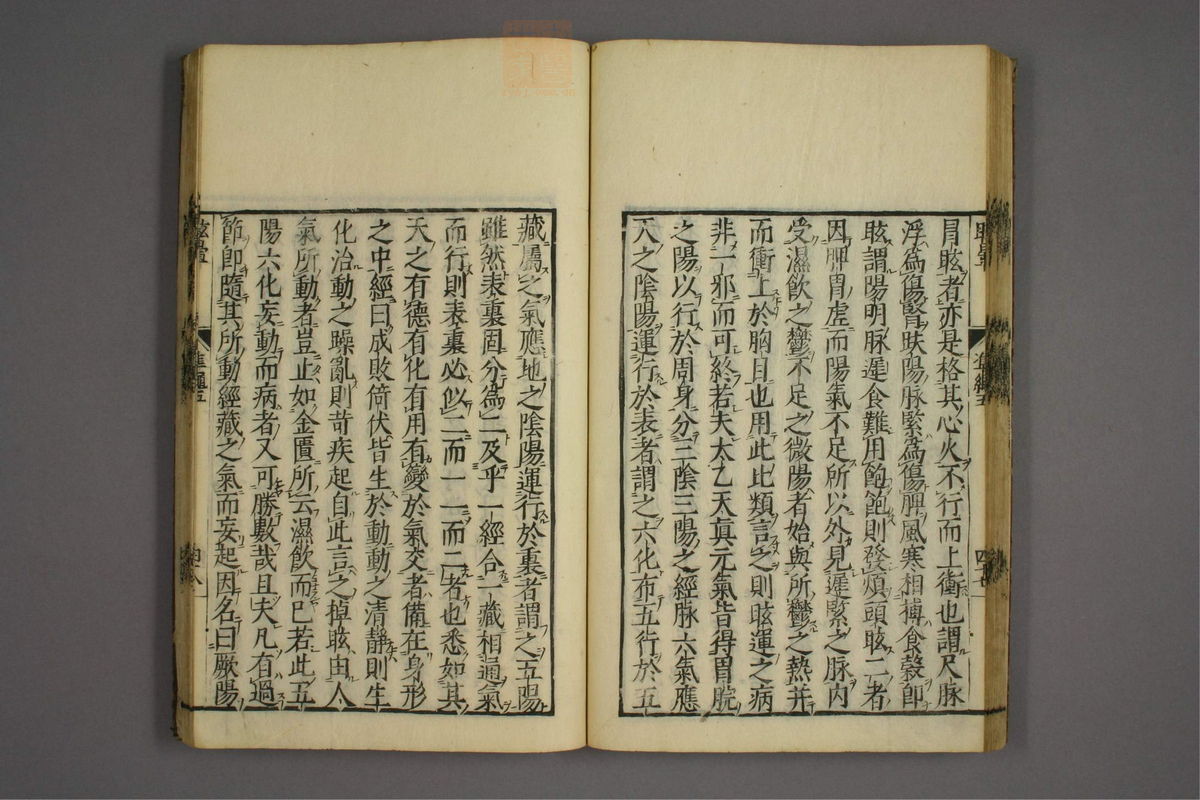 冒眩者亦是格其心火不行而上衝也謂尺脉
浮為傷腎趺陽脉緊為傷脾風寒相搏食穀即
眩謂陽明脉遲食難用飽飽則發煩頭眩二者
因脾胃虛而陽氣不足所以外見遲緊之脉内
受濕飲之鬱不足之微陽者始與所鬱之熱并
而衝上於胸目也用此比類言之則眩運之病
非一邪而可終若夫太乙天真元氣皆得胃脘
之陽以行於周身分三陰三陽之經脉六氣應
天之陰陽運行於表者謂之六化布五行於五
藏屬之氣應地之陰陽運行於裏者謂之五陽
雖然表裏固分為二及乎一經合一藏相通氣
而行則表裏必似二而一一而二者也悉如其
天之有德有化有用有變於氣交者備在身形
之中經曰成敗倚伏皆生於動動之清靜則生
化治動之躁亂則苛疾起自此言之掉眩由人
氣所動者豈止如金匱所云濕飲而已若此五
陽六化妄動而病者又可勝數哉且夫凡有過
節即隨其所動經藏之氣而妄起因名曰厥陽